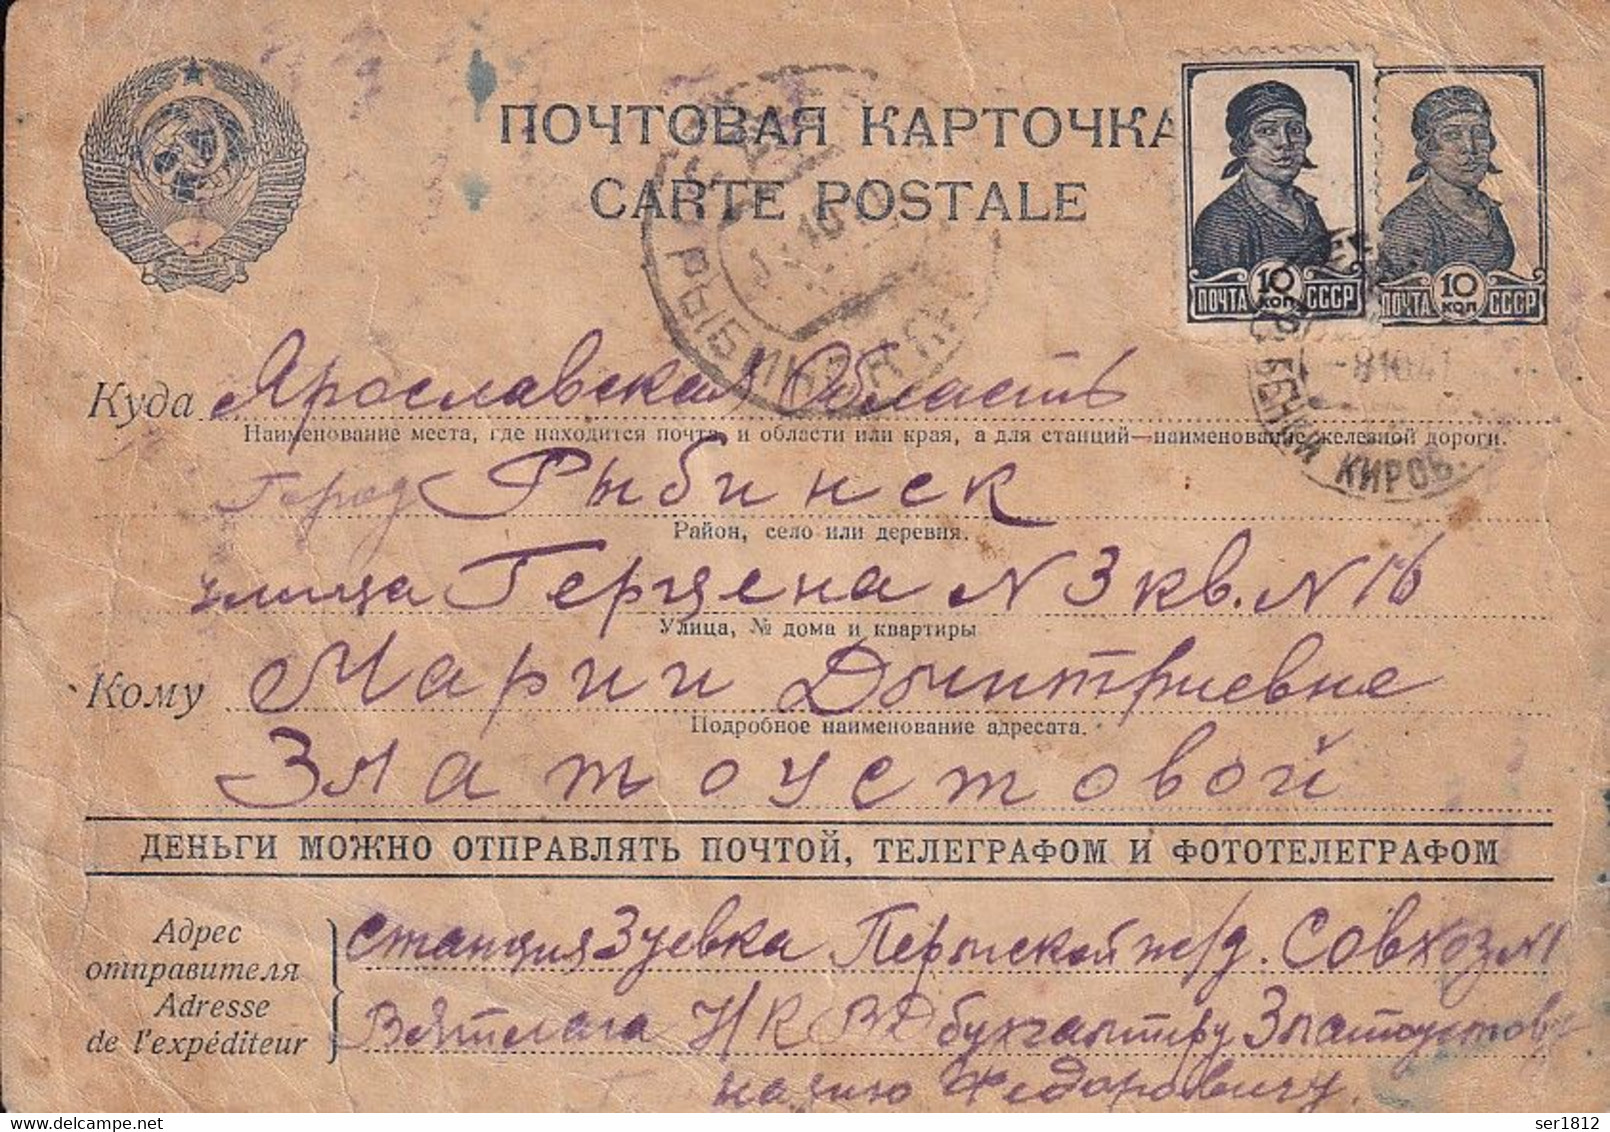 ПОЧТОВАЯ КАРТОЧКА
CARTE POSTALE
ПОЧТА 10 КОП СССР
ПОЧТА 10 КОП СССР
РЫБИНСК
8 10 41
КИРОВ.
Куда Ярославская Область
Наименование места, где находится почта, и области или края, а для станций—наименование железной дороги.
Город Рыбинск
Район, село или деревня.
улица Герцена N 3 кв. N 16
Улица, № дома и квартиры
Кому Марии Дмитриевне
Подробное наименование адресата.
Златоустовой
ДЕНЬГИ МОЖНО ОТПРАВЛЯТЬ ПОЧТОЙ, ТЕЛЕГРАФОМ И ФОТОТЕЛЕГРАФОМ
Адрес отправителя
Adresse de l'expéditeur
станция Зуевка Пермской ж/д. Совхоз N 1
Вятлага НКВД бухгалтеру Златоустов
Федоровичу.
delcampe.net
ser1812